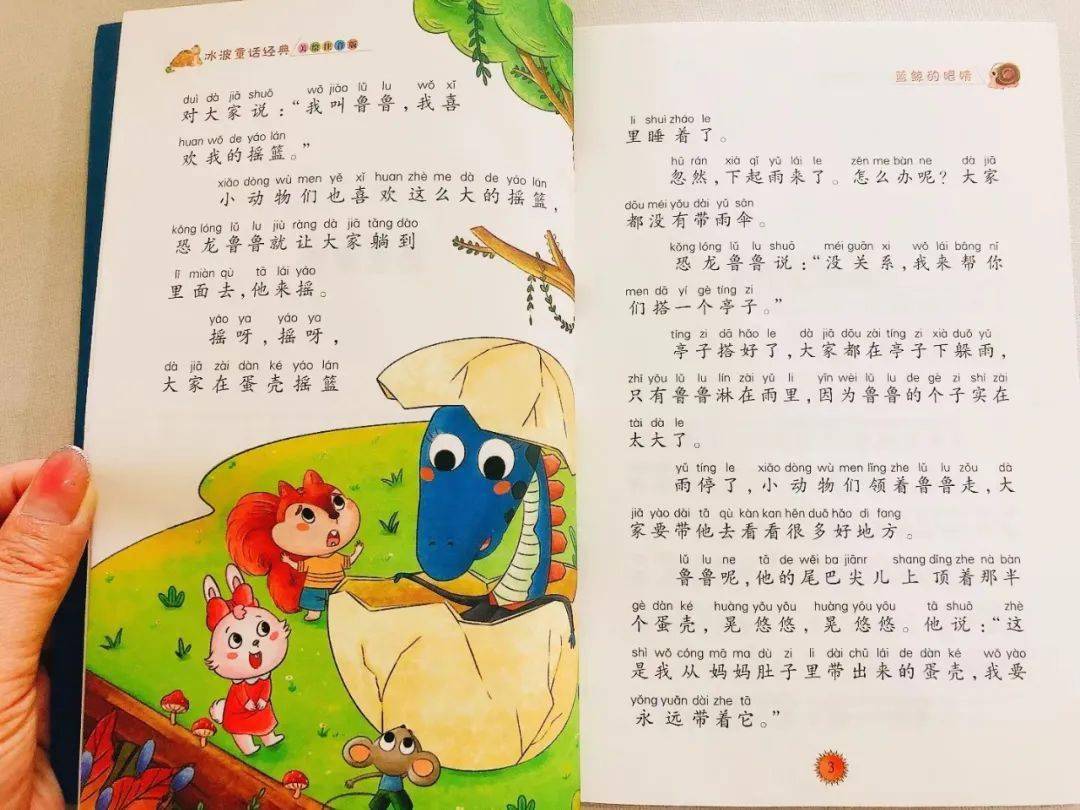 冰波童话经典 美绘注音版
duì dà jiā shuō wǒ jiào lǔ lu wǒ xǐ
对大家说：“我叫鲁鲁，我喜
huan wǒ de yáo lán
欢我的摇篮。”
xiǎo dòng wù men yě xǐ huan zhè me dà de yáo lán
小动物们也喜欢这么大的摇篮，
kǒng lóng lǔ lu jiù ràng dà jiā tǎng dào
恐龙鲁鲁就让大家躺到
lǐ miàn qù tā lái yáo
里面去，他来摇。
yáo ya yáo ya
摇呀，摇呀，
dà jiā zài dàn ké yáo lán
大家在蛋壳摇篮
蓝鲸的眼睛
li shuì zháo le
里睡着了。
hū rán xià qǐ yǔ lái le zěn me bàn ne dà jiā
忽然，下起雨来了。怎么办呢？大家
dōu méi yǒu dài yǔ sǎn
都没有带雨伞。
kǒng lóng lǔ lu shuō méi guān xi wǒ lái bāng nǐ
恐龙鲁鲁说：“没关系，我来帮你
men dā yí gè tíng zi
们搭一个亭子。”
tíng zi dā hǎo le dà jiā dōu zài tíng zi xià duǒ yǔ
亭子搭好了，大家都在亭子下躲雨，
zhǐ yǒu lǔ lu lín zài yǔ li yīn wèi lǔ lu de gè zi shí zài
只有鲁鲁淋在雨里，因为鲁鲁的个子实在
tài dà le
太大了。
yǔ tíng le xiǎo dòng wù men lǐng zhe lǔ lu zǒu dà
雨停了，小动物们领着鲁鲁走，大
jiā yào dài tā qù kàn kan hěn duō hǎo dì fang
家要带他去看看很多好地方。
lǔ lu ne tā de wěi ba jiānr shang dǐng zhe nà bàn
鲁鲁呢，他的尾巴尖儿上顶着那半
gè dàn ké huàng yōu yōu huàng yōu yōu tā shuō zhè
个蛋壳，晃悠悠，晃悠悠。他说：“这
shì wǒ cóng mā ma dù zi li dài chū lái de dàn ké wǒ yào
是我从妈妈肚子里带出来的蛋壳，我要
yǒng yuǎn dài zhe tā
永远带着它。”
3